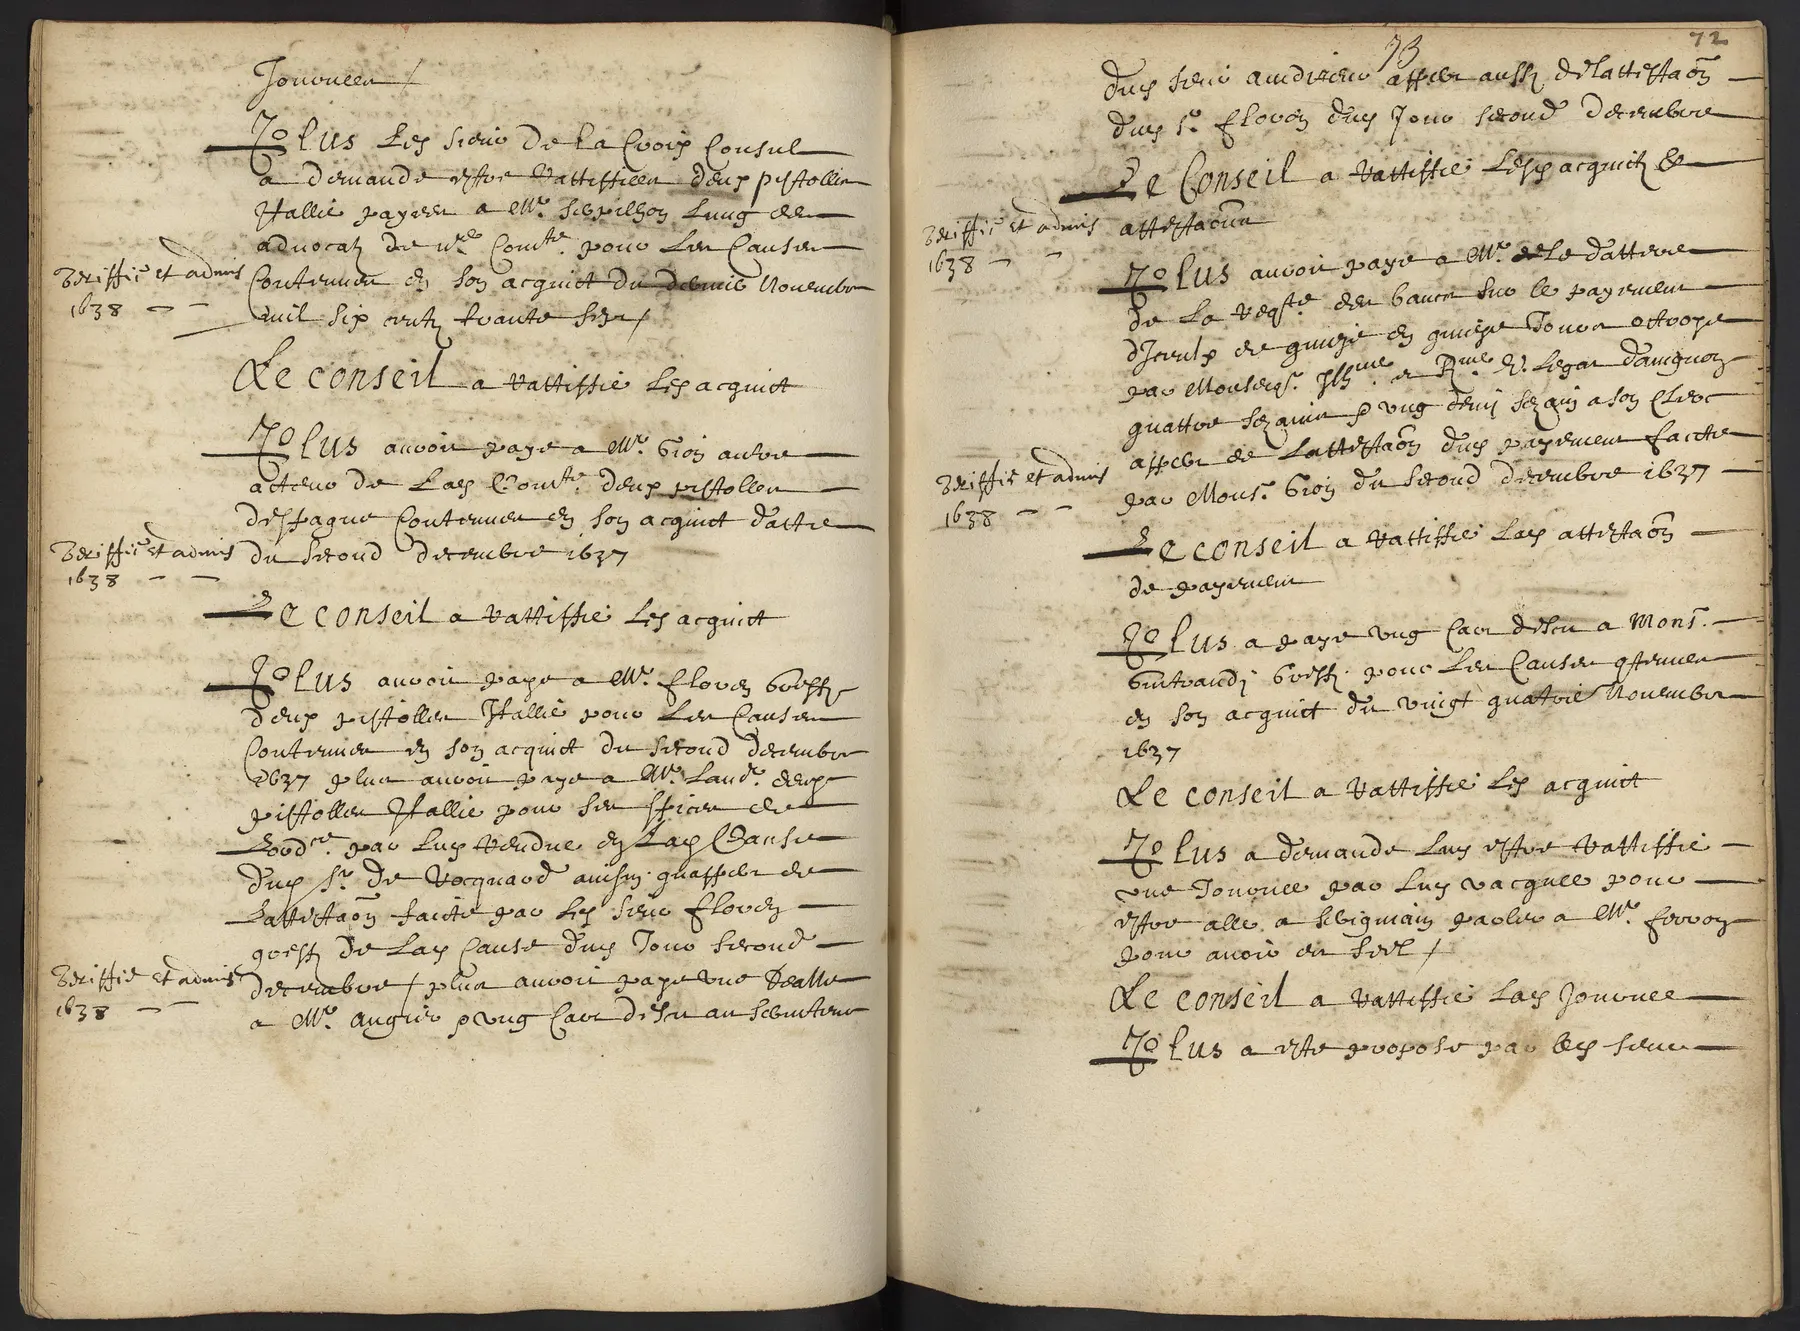 Journeer /
Plus led sieur De La Croix Consul
a demande estre rattiffieer deux pistollin
Itallie payeer a Mr. lung der
advocatz de nre. Comte. pour ler causer
Contenuer en son acquict du dernie Novembre
mil six centz trante sept /
veriffié et admis
1638
Le conseil a rattiffié led acquict
Plus avoir paye a Mr. Gion autre
acteur de lad Comte. deux pistoller
despagne Contenuer en son acquict datte
du second decembre 1637
veriffié et admis
1638
Le conseil a rattiffié led acquict
Plus avoir paye a Mr. floren greff.
deux pistoller Itallie pour ler causer
Contenuer en son acquict du second decembre
1637 plus avoir paye a Mr. Laud. deux
pistoller Itallie pour ser espicer de
par luy rendue en lad Cause
dud Sr. De aussy quapper de
Lattestaon faicte par led sieur floren
greff. de lad Cause dud Jour second
decembre / plus avoir paye une
a Mr. p ung cart descu au serviteur
veriffié et admis
1638
73
72
dud sieur auditeur apper aussy de lattestaon
dud Sr. floren dud Jour second decembre
Le Conseil a rattiffié lesd acquitz &
attestaonr
veriffié et admis
1638
Plus avoir paye a Mr. de le datterie
de la reqte. der sur le payement
par Monseigr. Illme. et Rme. V. legat davignon
quattre p ung demj a son clerc
apper de lattestaon dud payement faicte
par Monsr. Gion du second decembre 1637
veriffié et admis
1638
Le conseil a rattiffié lad attestaon
de payement
Plus a paye ung cart descu a Monsr.
greff. pour ler causer qtenuer
en son acquict du vingt quatrie Novembre
1637
Le conseil a rattiffié led acquict
Plus a demande luy estre rattiffié
une Journee par luy vacquee pour
estre allé a parler a Mr.
pour avoir du seel /
Le conseil a rattiffié lad Journee
Plus a este propose par led sieur